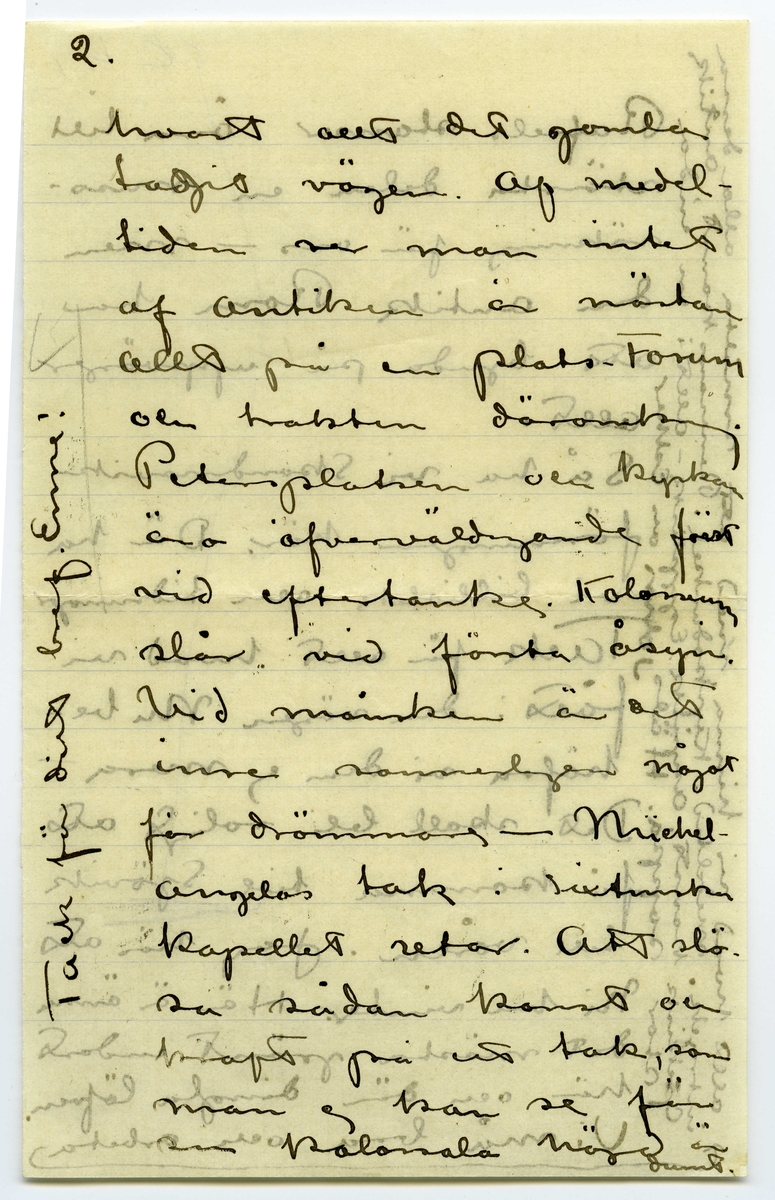 2.
hvart allt det gamla
tagit vägen. Af medel-
tiden ser man intet
af antiken är nästan
allt på en plats - Forum
och trakten däromkring.
Petersplatsen och kyrkan
äro öfverväldigande först
vid eftertanke. Kolosseum
slår vid första åsyn.
Vid månsken är det
inre sannerligen något
för drömmare — Michel-
angelos tak i sixtinska
kapellet retar. Att slö-
sa sådan konst och
kraft på ett tak, som
man ej kan se för
sin kolossala höjd är
dumt.
Tack för ditt bref. Emmi!